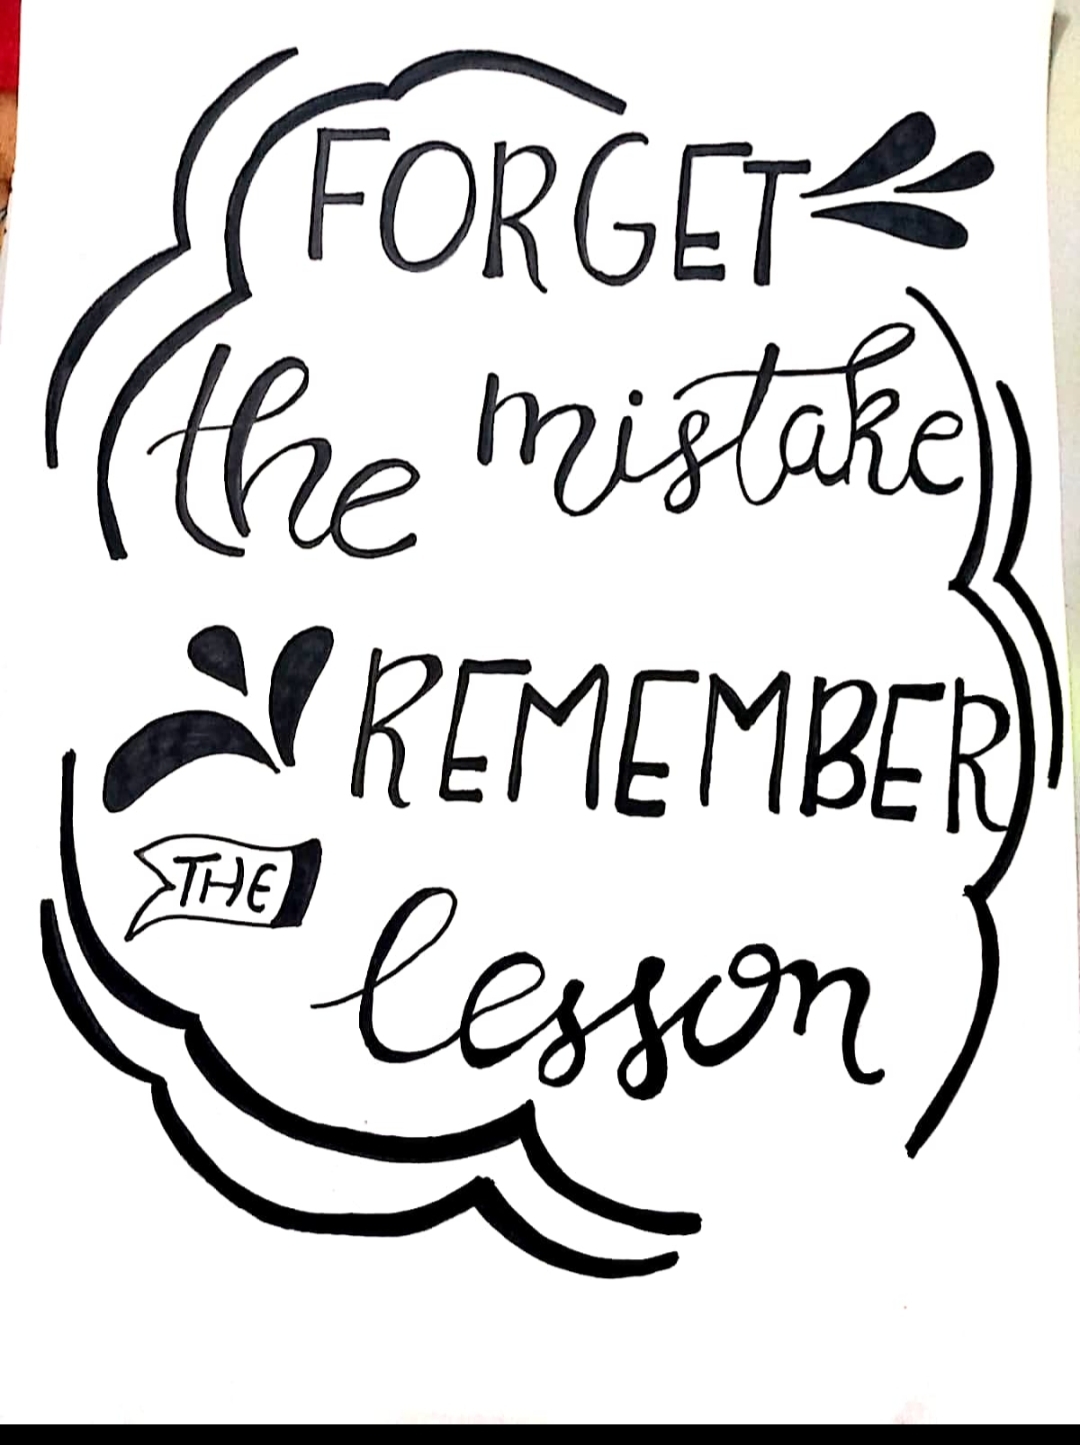 FORGET
the mistake
REMEMBER
THE
lesson